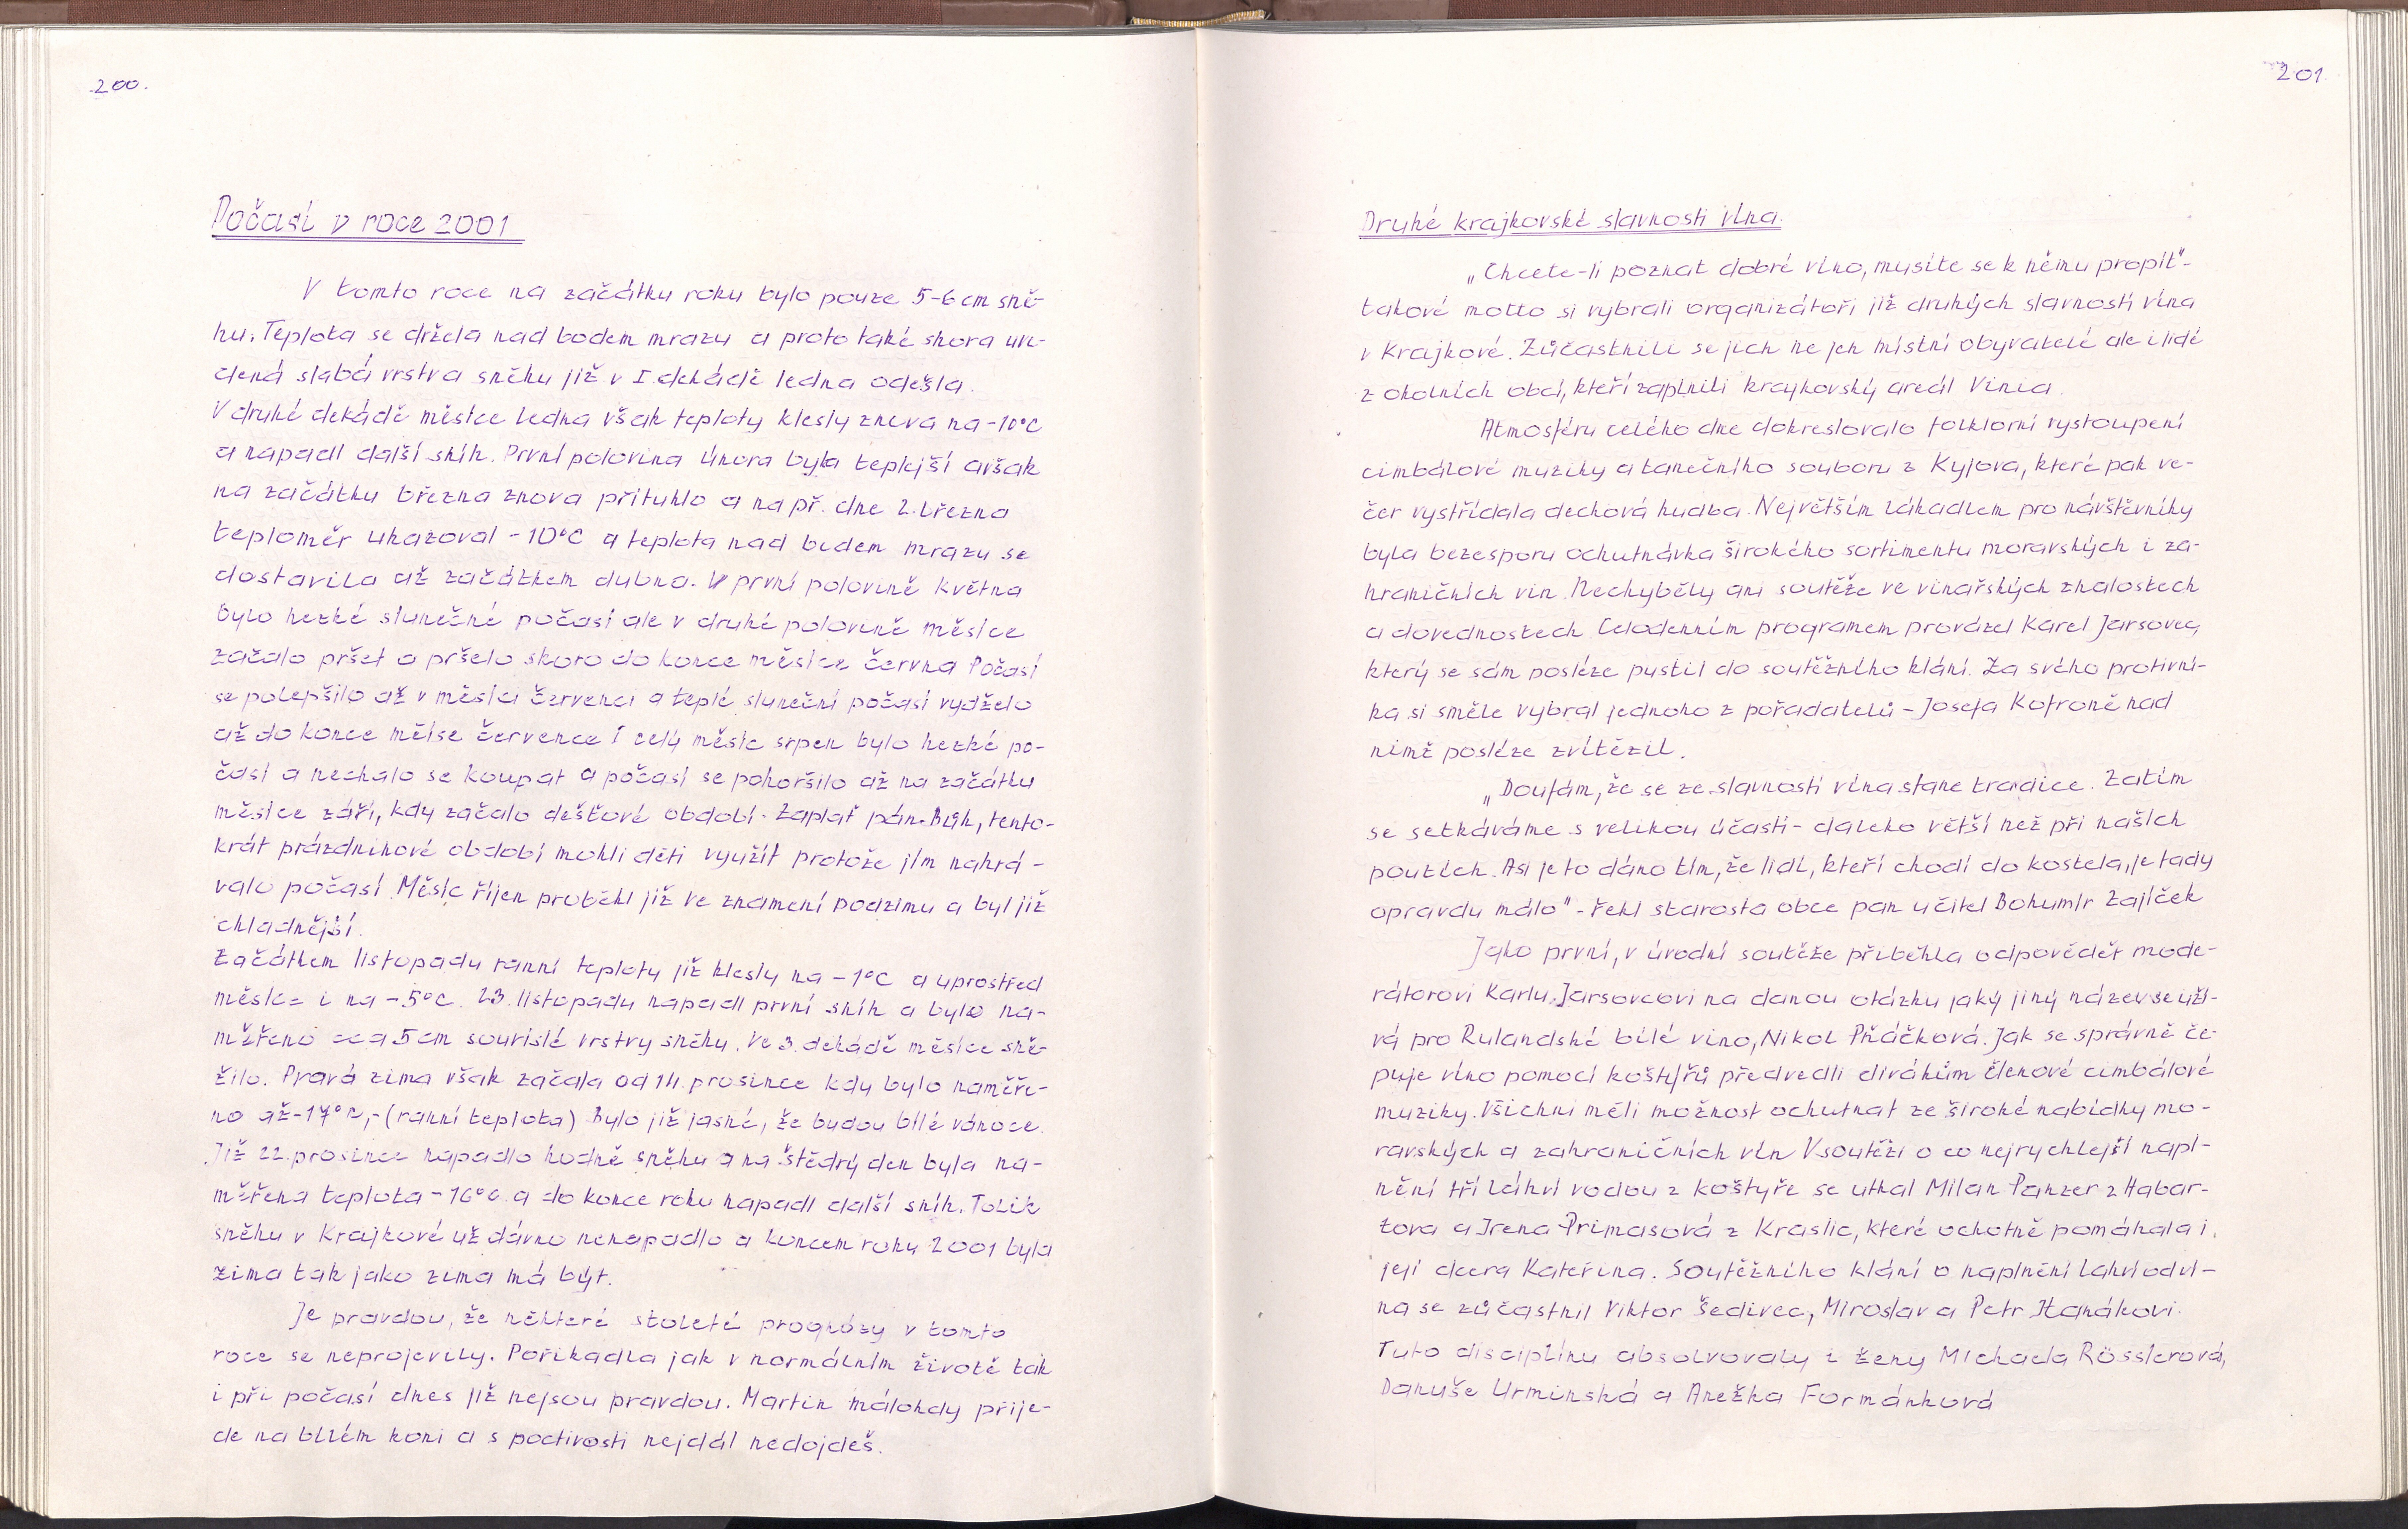 200.
Počasí v roce 2001
V tomto roce na začátku roku bylo pouze 5-6 cm sně-
hu. Teplota se držela nad bodem mrazu a proto také skora uve-
dená slabá vrstva sněhu již v I. dekádě ledna odešla.
V druhé dekádě měsíce ledna však teploty klesly znova na -10°C
a napadl další sníh. První polovina února byla teplejší avšak
na začátku března znova přituhlo a např. dne 2. března
teploměr ukazoval -10°C a teplota nad bodem mrazu se
dostavila až začátkem dubna. V první polovině května
bylo hezké slunečné počasí ale v druhé polovině měsíce
začalo pršet a pršelo skoro do konce měsíce června Počasí
se polepšilo až v měsíci červenci a teplé sluneční počasí vydželo
až do konce měíse července I celý měsíc srpen bylo hezké po-
časí a nechalo se koupat a počasí se pohoršilo až na začátku
měsíce září, kdy začalo dešťové období. Zaplať pán Bůh, tento-
krát prázdninové období mohli děti využít protože jím nahrá-
valo počasí Měsíc říjen proběhl již ve znamení podzimu a byl již
chladnější.
Začátkem listopadu ranní teploty již klesly na -1°C a uprostřed
měsíce i na -5°C. 23. listopadu napadl první sníh a bylo na-
měřeno cca 5 cm souvislé vrstvy sněhu. Ve 3. dekádě měsíce sně-
žilo. Pravá zima však začala od 14. prosince kdy bylo naměře-
no až -17°C,- (ranní teplota) Bylo již jasné, že budou bílé vánoce.
Již 22. prosince napadlo hodně sněhu a na štědrý den byla na-
měřena teplota -16°C. a do konce roku napadl další sníh. Tolik
sněhu v Krajkové už dávno nenapadlo a koncem roku 2001 byla
zima tak jako zima má být.
Je pravdou, že některé stoleté prognózy v tomto
roce se neprojevily. Pořikadla jak v normálním životě tak
i při počasí dnes již nejsou pravdou. Martin málokdy přije-
de na bílém koni a s poctivosti nejdál nedojdeš.
201
Druhé krajkovské slavnosti vína.
„Chcete-li poznat dobré víno, musíte se k němu propít"-
takové motto si vybrali organizátoři již druhých slavností vína
v Krajkové. Zůčastnili se jich ne jen místní obyvatelé ale i lidé
z okolních obcí, kteří zaplnili krajkovský areál Vinia.
Atmosféru celého dne dokreslovalo folklorní vystoupení
cimbálové muziky a tanečního souboru z Kyjova, které pak ve-
čer vystřídala dechová hudba. Největším lákadlem pro návštěvníky
byla bezesporu ochutnávka širokého sortimentu moravských i za-
hraničních vín. Nechyběly ani soutěže ve vinařských znalostech
a dovednostech. Celodenním programem provázel Karel Jarsovec,
který se sám posléze pustil do soutěžního klání. Za svého protivní-
ka si směle vybral jednoho z pořadatelů - Josefa Kofroně nad
nimž posléze zvítězil.
„Doufám, že se ze slavností vína stane tradice. Zatím
se setkáváme s velikou účastí - daleko větší než při našich
poutích. Asi je to dáno tím, že lidí, kteří chodí do kostela, je tady
opravdu málo" - řekl starosta obce pan učitel Bohumír Zajíček
Jako první, v úvodní soutěže přiběhla odpovědět mode-
rátorovi Karlu Jarsovcovi na danou otázku jaký jiný název se uží-
vá pro Rulandské bílé víno, Nikol Ptáčková. Jak se správně če-
puje víno pomocí koštýřů předvedli divákům členové cimbálové
muziky. Všichni měli možnost ochutnat ze široké nabídky mo-
ravských a zahraničních vín V soutěži o co nejrychlejší napl-
nění tří láhví vodou z koštýře se utkal Milan Panzer z Habar-
tova a Irena Primasová z Kraslic, které ochotně pomáhala i
její dcera Kateřina. Soutěžního klání o naplnění lahví od ví-
na se zůčastnil Viktor Šedivec, Miroslav a Petr Hanákovi.
Tuto disciplínu absolvovaly i ženy Michaela Rösslerová,
Danuše Urminská a Anežka Formánková